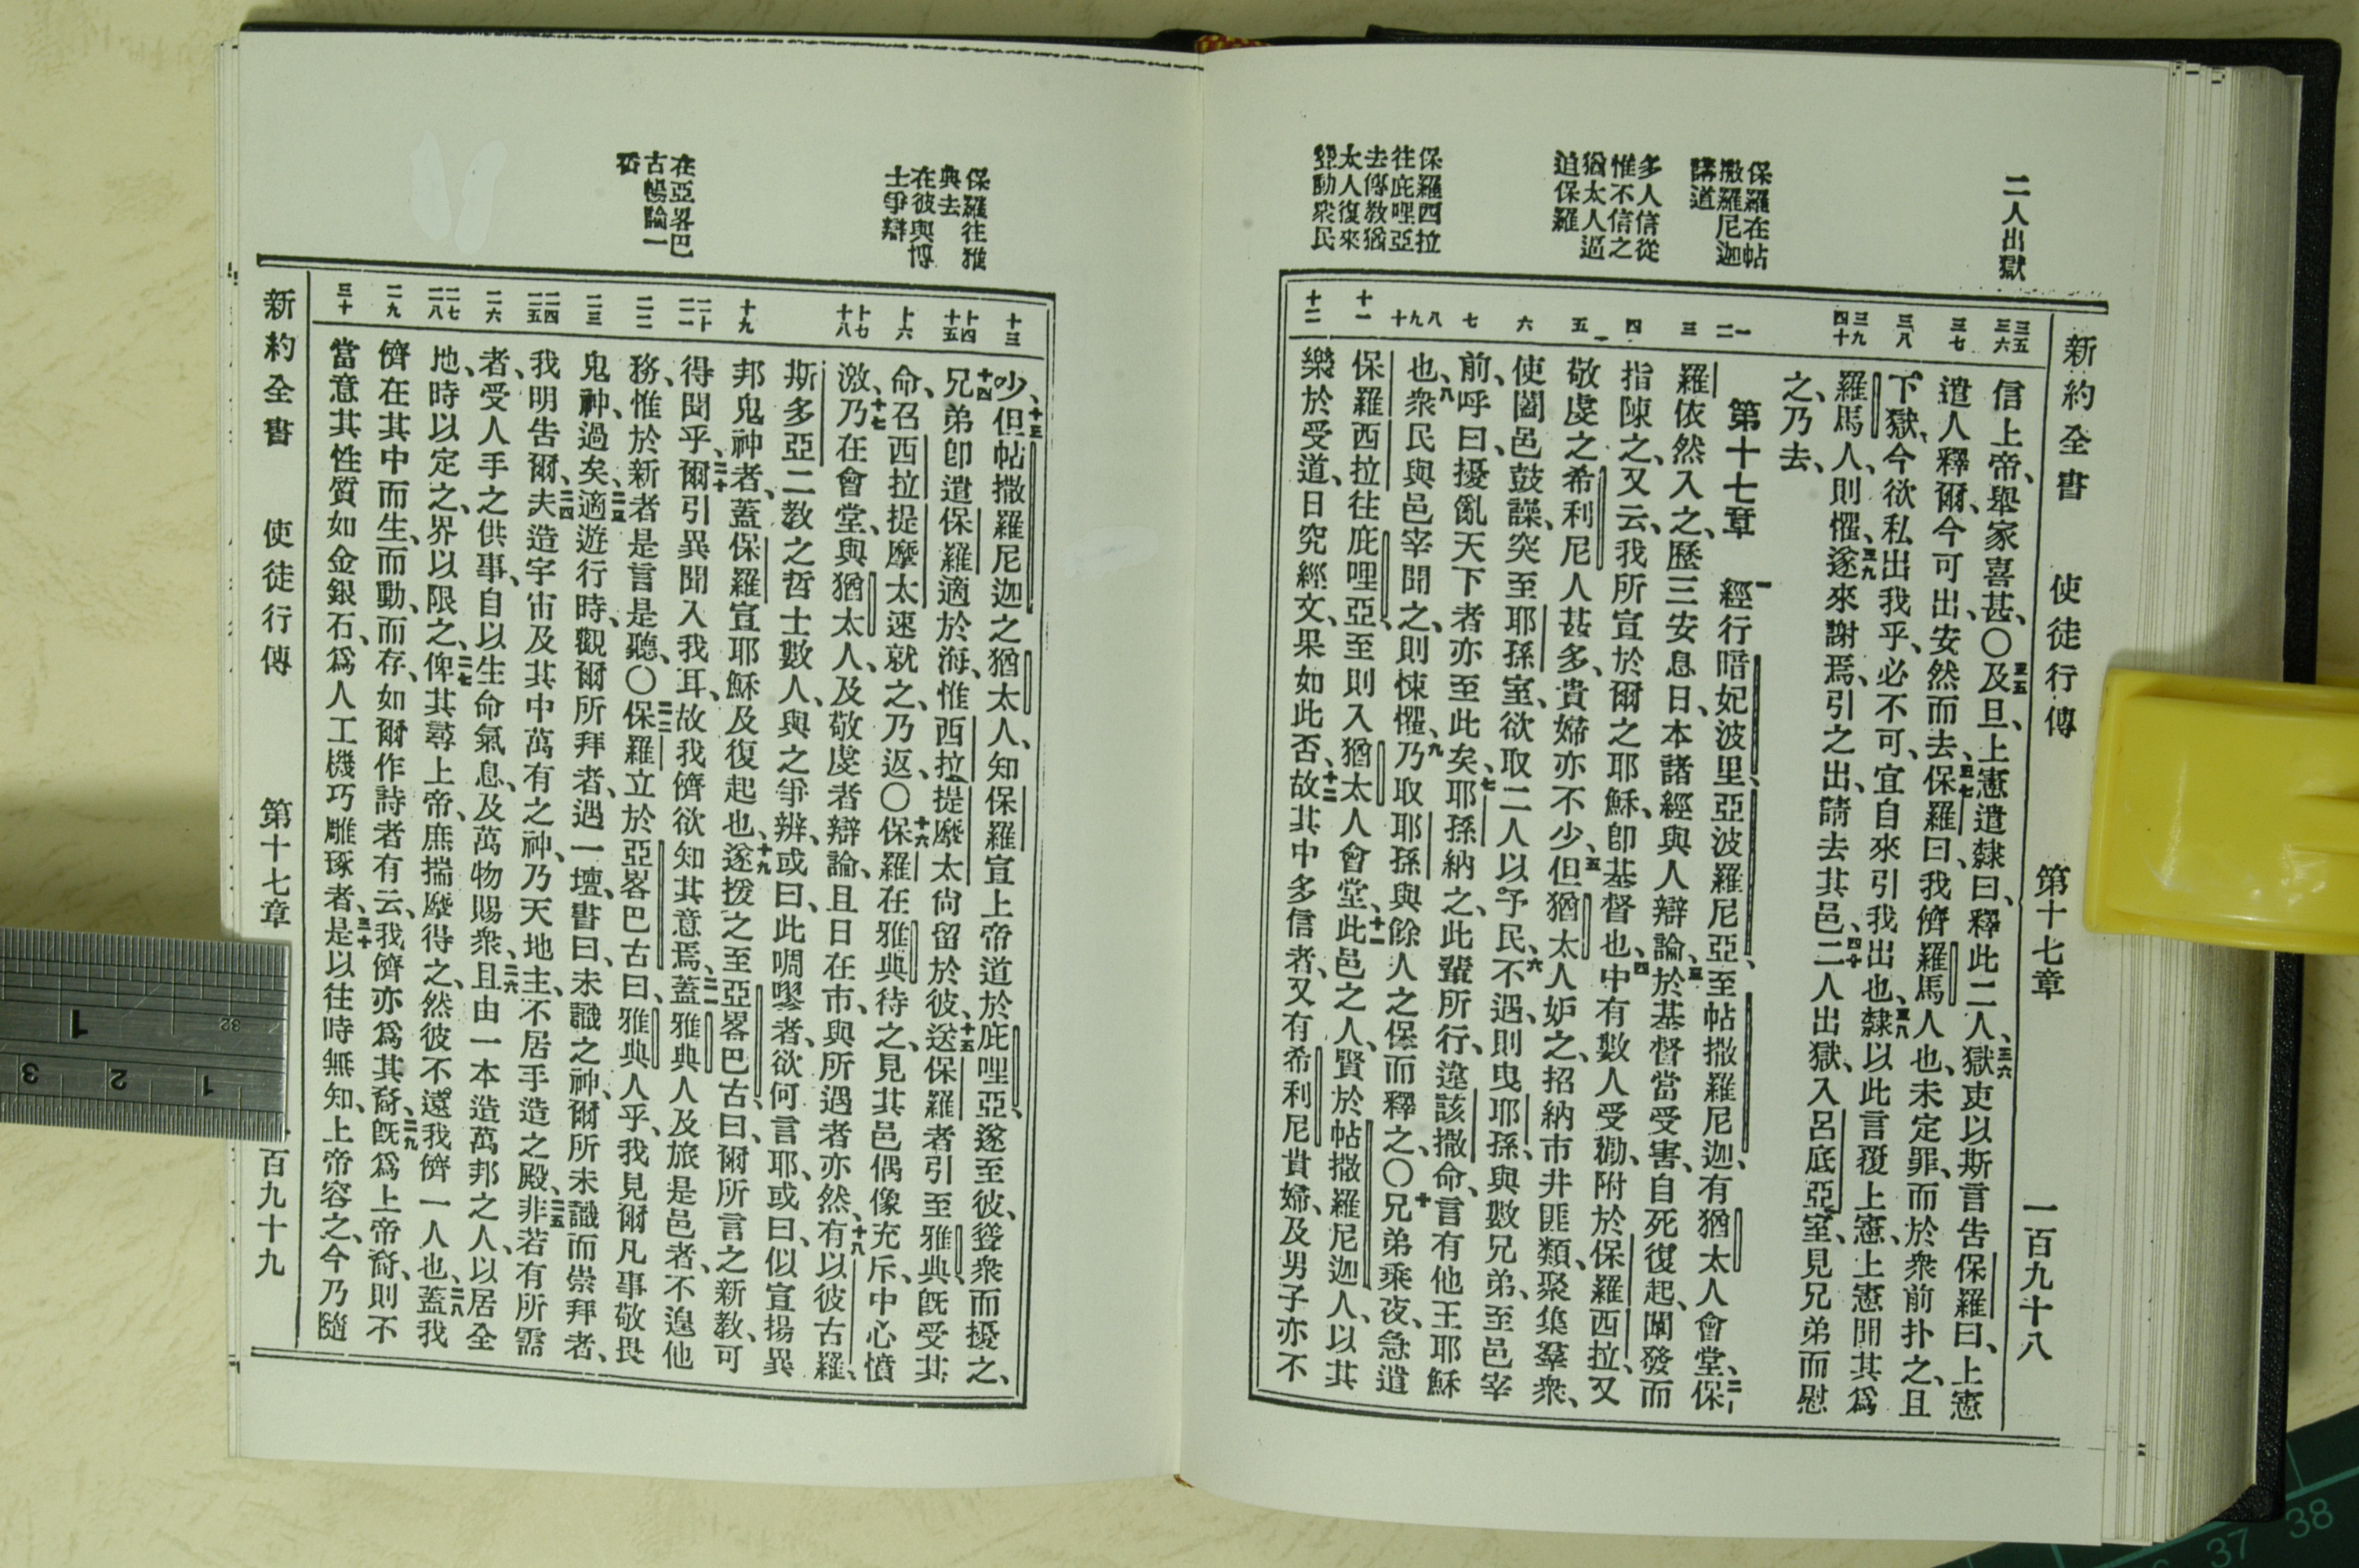 新約全書 使徒行傳 第十七章 一百九十八
二人出獄
保羅在帖
撒羅尼迦
講道
多人信從
惟不信之
猶太人逼
迫保羅
保羅西拉
往庇哩亞
去傳教猶
太人復來
聳動衆民
三五 三六 三七 三八 三九 四十 一 二 三 四 五 六 七 八 九 十 十一 十二
信上帝、舉家喜甚、〇三五及旦、上憲遣隸曰、釋此二人、三六獄吏以斯言告保羅曰、上憲
遣人釋爾、今可出、安然而去、三七保羅曰、我儕羅馬人也、未定罪、而於衆前扑之、且
下獄、今欲私出我乎、必不可、宜自來引我出也、三八隸以此言覆上憲、上憲聞其爲
羅馬人、則懼、三九遂來謝焉、引之出、請去其邑、四十二人出獄、入呂底亞室、見兄弟而慰
之、乃去、
第十七章 一經行暗妃波里、亞波羅尼亞、至帖撒羅尼迦、有猶太人會堂、二保
羅依然入之、歷三安息日、本諸經與人辯論、三於基督當受害、自死復起、闡發而
指陳之、又云、我所宣於爾之耶穌、卽基督也、四中有數人受勸、附於保羅西拉、又
敬虔之希利尼人甚多、貴婦亦不少、五但猶太人妒之、招納市井匪類、聚集羣衆、
使闔邑鼓譟、突至耶孫室、欲取二人以予民、六不遇、則曳耶孫、與數兄弟、至邑宰
前、呼曰、擾亂天下者亦至此矣、七耶孫納之、此輩所行、違該撒命、言有他王耶穌
也、八衆民與邑宰聞之、則悚懼、九乃取耶孫與餘人之保而釋之、〇十兄弟乘夜、急遣
保羅西拉往庇哩亞、至則入猶太人會堂、十一此邑之人、賢於帖撒羅尼迦人、以其
樂於受道、日究經文、果如此否、十二故其中多信者、又有希利尼貴婦、及男子亦不
保羅往雅
典去
在彼與博
士爭辯
在亞畧巴
古暢論一
番
十三 十四 十五 十六 十七 十八 十九 二十 二一 二二 二三 二四 二五 二六 二七 二八 二九 三十
少、十三但帖撒羅尼迦之猶太人、知保羅宣上帝道於庇哩亞、遂至彼、聳衆而擾之、
十四兄弟卽遣保羅適於海、惟西拉提摩太尙留於彼、十五送保羅者引至雅典、旣受其
命、召西拉提摩太速就之、乃返、〇十六保羅在雅典待之、見其邑偶像充斥、中心憤
激、十七乃在會堂、與猶太人、及敬虔者辯論、且日在市、與所遇者亦然、十八有以彼古羅、
斯多亞二敎之哲士數人、與之爭辨、或曰、此啁嘐者、欲何言耶、或曰、似宣揚異
邦鬼神者、蓋保羅宣耶穌及復起也、十九遂援之至亞畧巴古、曰、爾所言之新教、可
得聞乎、二十爾引異聞入我耳、故我儕欲知其意焉、二一蓋雅典人及旅是邑者、不遑他
務、惟於新者是言是聽、〇二二保羅立於亞畧巴古曰、雅典人乎、我見爾凡事敬畏
鬼神、過矣、二三適遊行時、觀爾所拜者、遇一壇、書曰、未識之神、爾所未識而崇拜者、
我明告爾、二四夫造宇宙及其中萬有之神、乃天地主、不居手造之殿、二五非若有所需
者、受人手之供事、自以生命氣息、及萬物賜衆、二六且由一本造萬邦之人、以居全
地、時以定之、界以限之、二七俾其尋上帝、庶揣摩得之、然彼不遠我儕一人也、二八蓋我
儕在其中而生、而動、而存、如爾作詩者有云、我儕亦爲其裔、二九旣爲上帝裔、則不
當意其性質如金銀石、爲人工機巧雕琢者、三十是以往時無知、上帝容之、今乃隨
新約全書 使徒行傳 第十七章 百九十九
1
32
3 2 1
37 38